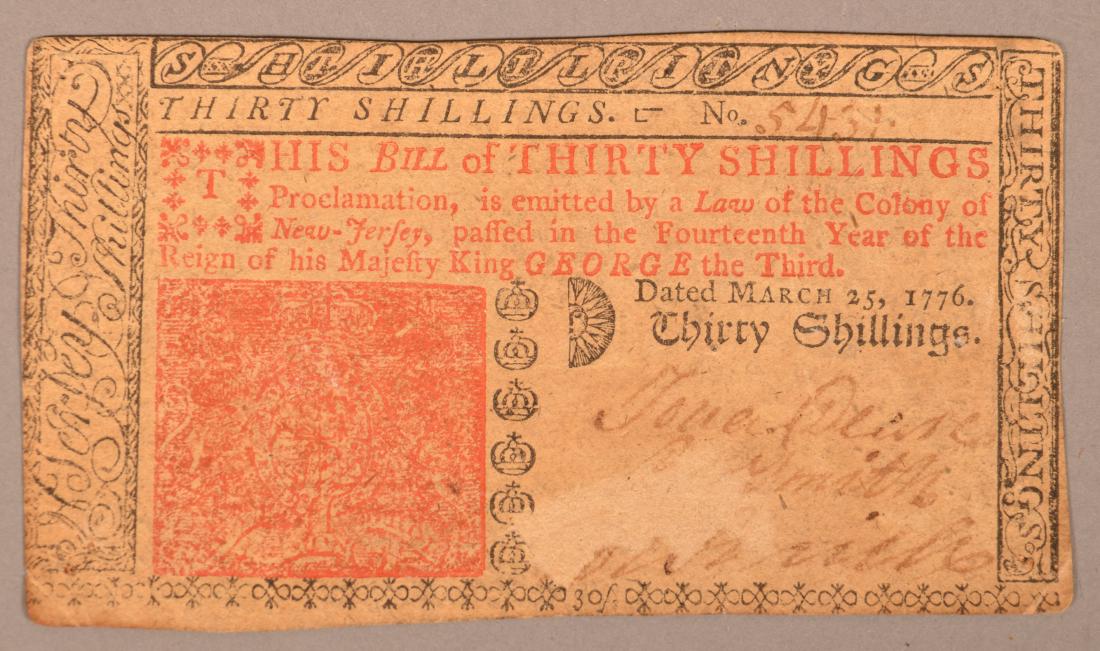 SHILLINGS
THIRTY SHILLINGS. No. 543
THIS BILL of THIRTY SHILLINGS
Proclamation, is emitted by a Law of the Colony of
New-Jerſey, paſſed in the Fourteenth Year of the
Reign of his Majeſty King GEORGE the Third.
Dated MARCH 25, 1776.
Thirty Shillings.
Smith
30ſ
N Jerſey Thirty
Shillings
THIRTY SHILLINGS